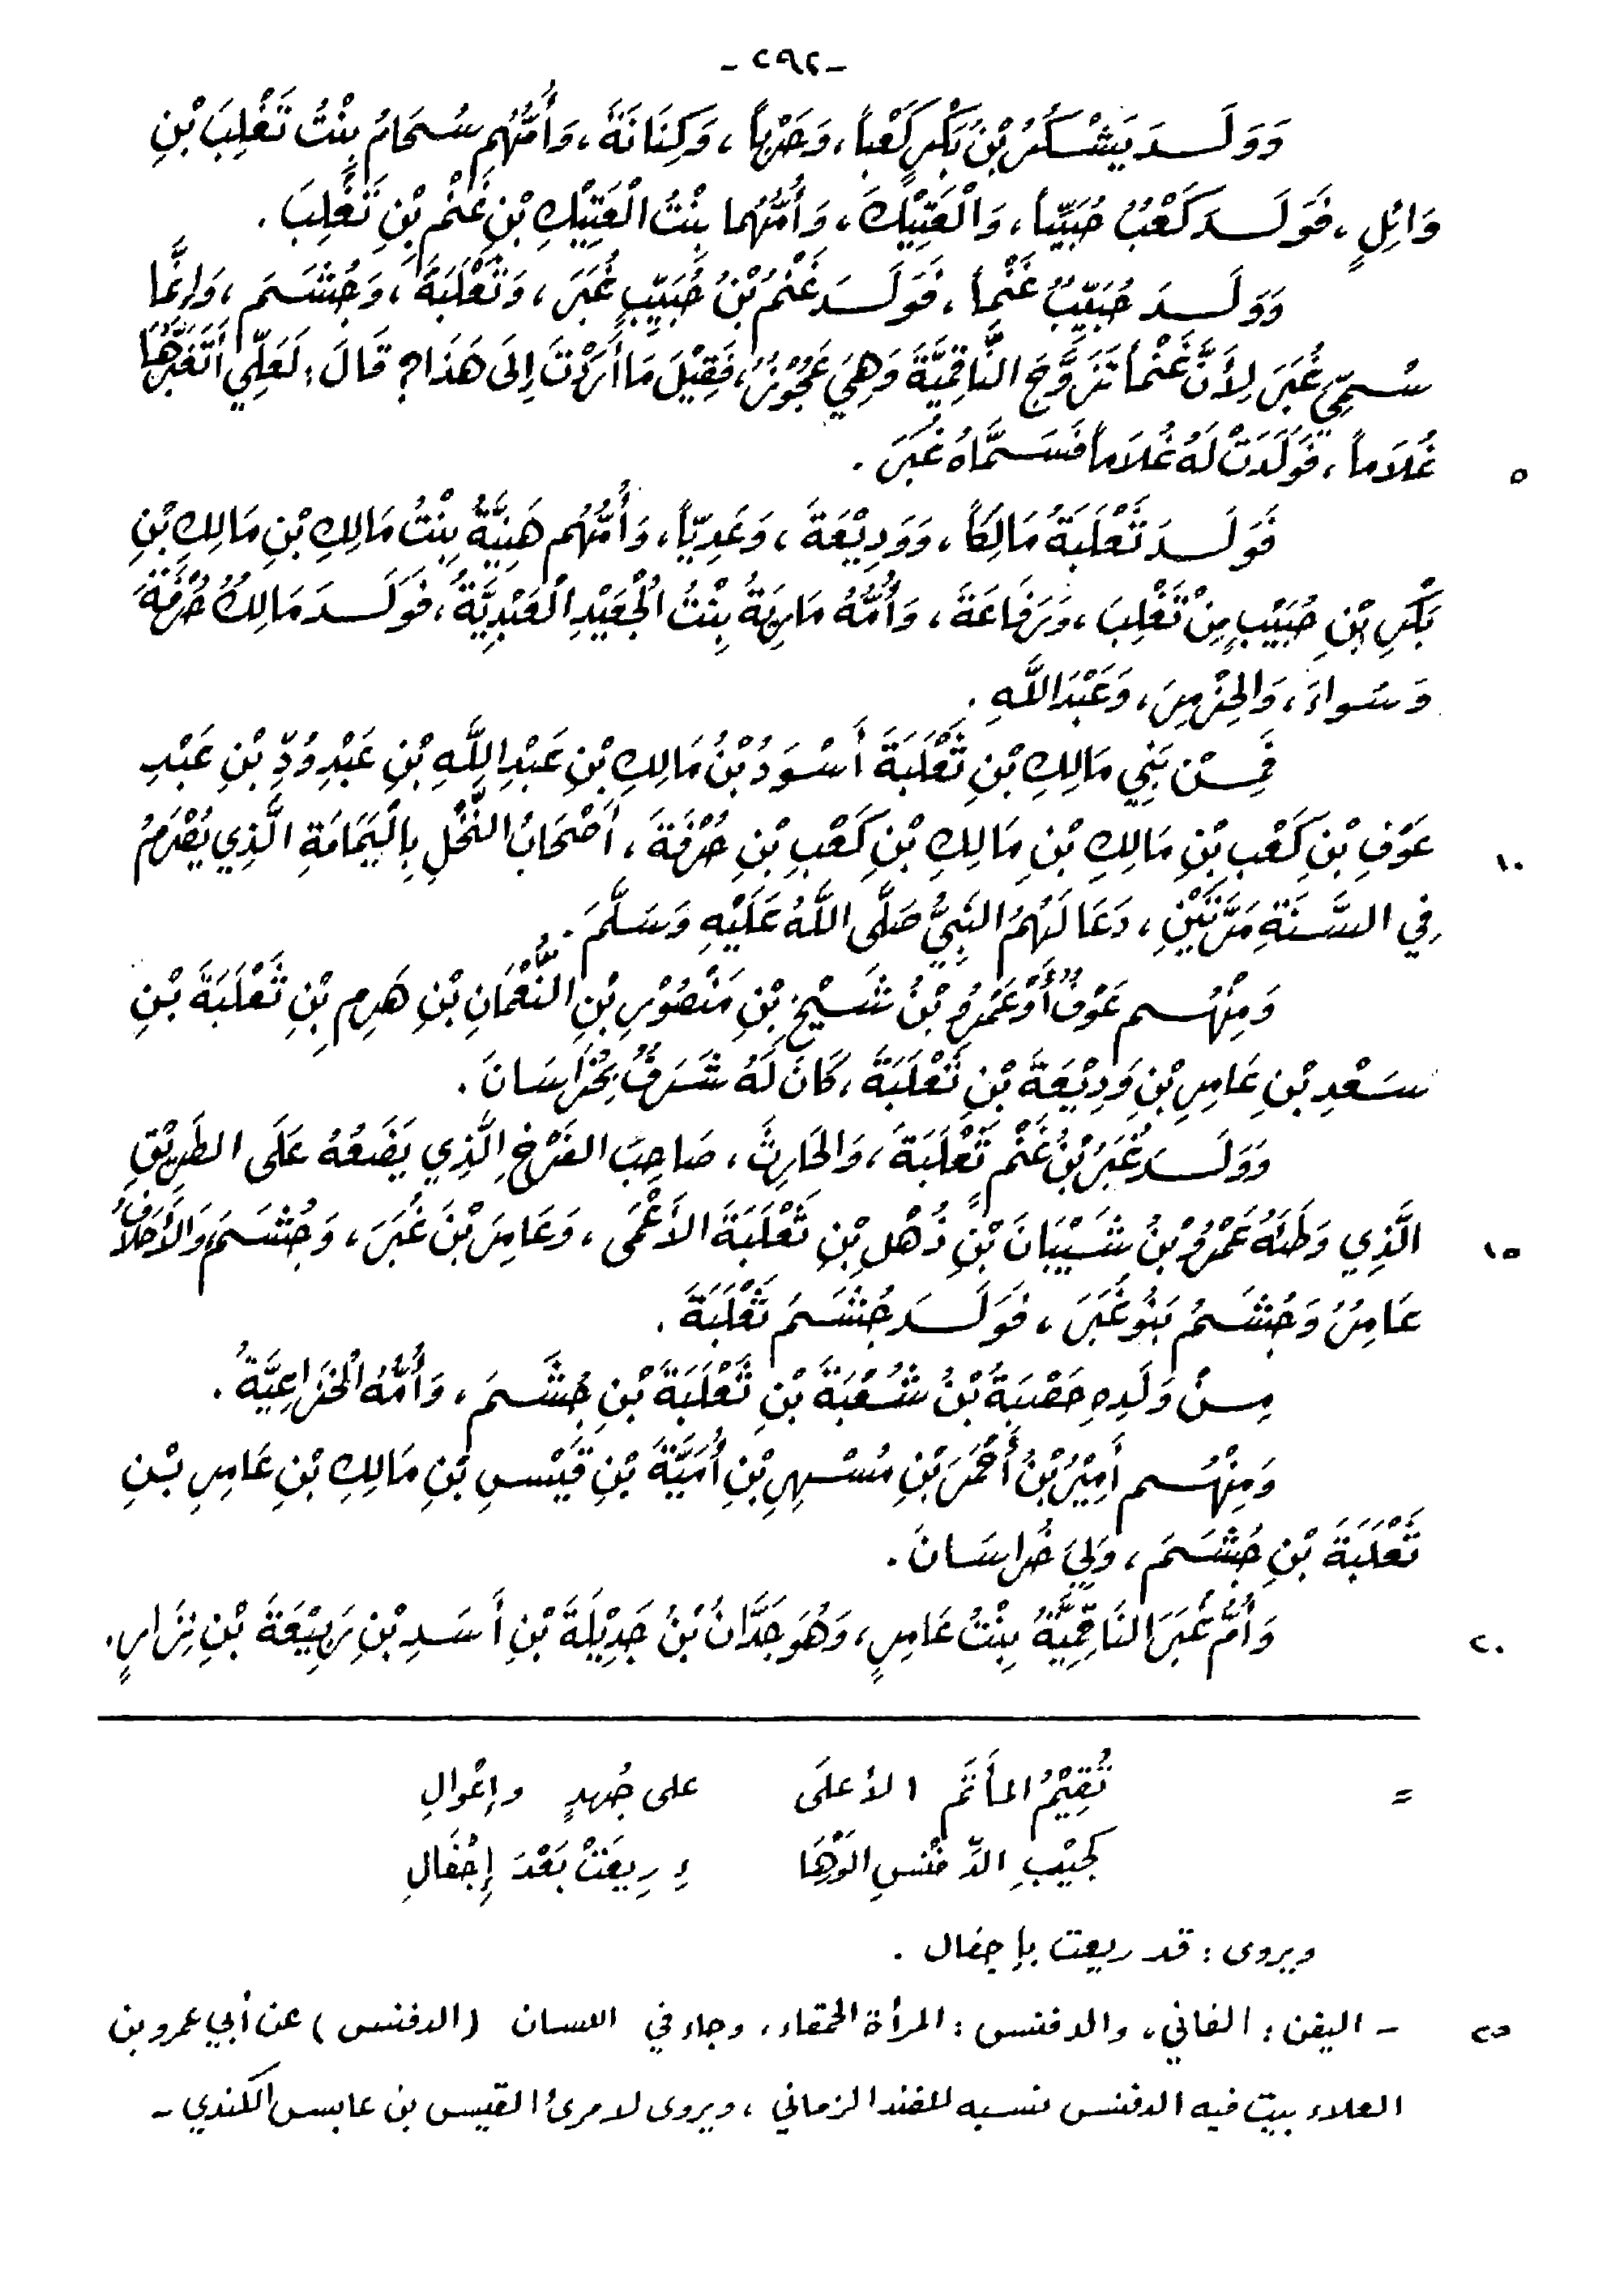 -٢٩٢-
وَوَلَـدَ يَشْكُرُ بْنُ بَكْرٍ كَعْباً، وَحَرْباً، وَكِنَانَةَ، وَأُمُّهُم سُحَامُ بِنْتُ تَغْلِبَ بْنِ
وَائِلٍ، فَوَلَـدَ كَعْبُ حُبَيِّباً، وَالْعَتِيْكَ، وَأُمُّهُما بِنْتُ الْعَتِيْكِ بْنِ غَنْمِ بْنِ تَغْلِبَ.
وَوَلَـدَ حُبَيِّبٌ غَنْماً، فَوَلَـدَ غَنْمُ بْنُ حُبَيِّبٍ غُبَرَ، وَثَعْلَبَةَ، وَجُشَـمَ، وَإِنَّمَا
سُـمِّيَ غُبَرَ لِأَنَّ غَنْماً تَزَوَّجَ النَّاقِمِيَّةَ وَهِيَ عَجُوْزٌ، فَقِيْلَ مَا أَرَدْتَ إِلَى هَذَا؟ قَالَ: لَعَلِّي أَتَغَبَّرُهَا
غُلَاماً، فَوَلَدَتْ لَهُ غُلَاماً فَسَـمَّاهُ غُبَرَ.
٥
فَوَلَـدَ ثَعْلَبَةُ مَالِكاً، وَوَدِيْعَةَ، وَعَدِيّاً، وَأُمُّهُم هَنِيَّةُ بِنْتُ مَالِكِ بْنِ مَالِكِ بْنِ
بَكْرِ بْنِ حُبَيْبٍ مِنْ تَغْلِبَ، وَرِفَاعَةَ، وَأُمُّهُ مَارِيَةُ بِنْتُ الْجُعَيْدِ الْعَبْدِيَّةُ، فَوَلَـدَ مَالِكُ حُرْفَةَ
وَسَوَاءَ، وَالحِرْمِزَ، وَعَبْدَ اللَّهِ.
فَمِـنْ بَنِي مَالِكِ بْنِ ثَعْلَبَةَ أَسْوَدُ بْنُ مَالِكِ بْنِ عَبْدِ اللَّهِ بْنِ عَبْدِ وُدِّ بْنِ عَبْدِ
عَوْفِ بْنِ كَعْبِ بْنِ مَالِكِ بْنِ مَالِكِ بْنِ كَعْبِ بْنِ حُرْفَةَ، أَصْحَابُ النَّخْلِ بِالْيَمَامَةِ الَّذِي يُصْرَمُ
١٠
فِي السَّـنَةِ مَرَّتَيْنِ، دَعَا لَهُمُ النَّبِيُّ صَلَّى اللَّهُ عَلَيْهِ وَسَلَّمَ.
وَمِنْهُـم عَوْفُ أَوْ عَمْرُو بْنُ شَـيْخِ بْنِ مَنْصُوْرِ بْنِ النُّعْمَانِ بْنِ هَرِمِ بْنِ ثَعْلَبَةَ بْنِ
سَـعْدِ بْنِ عَامِرِ بْنِ وَدِيْعَةَ بْنِ ثَعْلَبَةَ، كَانَ لَهُ شَـرَفٌ بِخُرَاسَانَ.
وَوَلَـدَ غُبَرُ بْنُ غَنْمٍ ثَعْلَبَةَ، وَالحَارِثَ، صَاحِبَ الفَرْخِ الَّذِي يَضَعُهُ عَلَى الطَرِيْقِ
الَّذِي وَطَئَهُ عَمْرُو بْنُ شَـيْبَانَ بْنِ ذُهْلِ بْنِ ثَعْلَبَةَ الأَعْمَى، وَعَامِرَ بْنَ غُبَرَ، وَجُشَـمَ، وَالأَحْلَافُ
١٥
عَامِرُ وَجُشَـمُ بَنُو غُبَرَ، فَوَلَـدَ جُشَـمُ ثَعْلَبَةَ.
مِـنْ وَلَدِهِ حَصْبَةُ بْنُ شُـعْبَةَ بْنِ ثَعْلَبَةَ بْنِ جُشَـمَ، وَأُمُّهُ الْخُزَاعِيَّةُ.
وَمِنْهُـم أَمِيْرُ بْنُ أَحْمَرَ بْنِ مُسْـهِرِ بْنِ أُمَيَّةَ بْنِ قَيْسِ بْنِ مَالِكِ بْنِ عَامِرِ بْنِ
ثَعْلَبَةَ بْنِ جُشَـمَ، وَلِيَ خُراسَانَ.
وَأُمُّ غُبَرَ النَّاقِمِيَّةُ بِنْتُ عَامِرٍ، وَهُوَ جَدَّانُ بْنُ جَدِيْلَةَ بْنِ أَسَـدِ بْنِ رَبِيْعَةَ بْنِ نِزَارٍ.
٢٠
= تُقِيْمُ المأتَمَ الأعلَى على جُهدٍ وإعْوالِ
كَجَيْبِ الدِّفْنسِ الوَرْهَا ءِ رِيعَتْ بَعْدَ إِجْفَالِ
ويروى: قد ريعت بإجفال.
- اليفن: الفاني، والدفنس: المرأة الحمقاء، وجاء في اللسان (الدفنس) عن أبي عمرو بن
٢٥
العلاء بيت فيه الدفنس نسبه للفند الزماني، ويروى لامرئ القيس بن عابس الكندي -